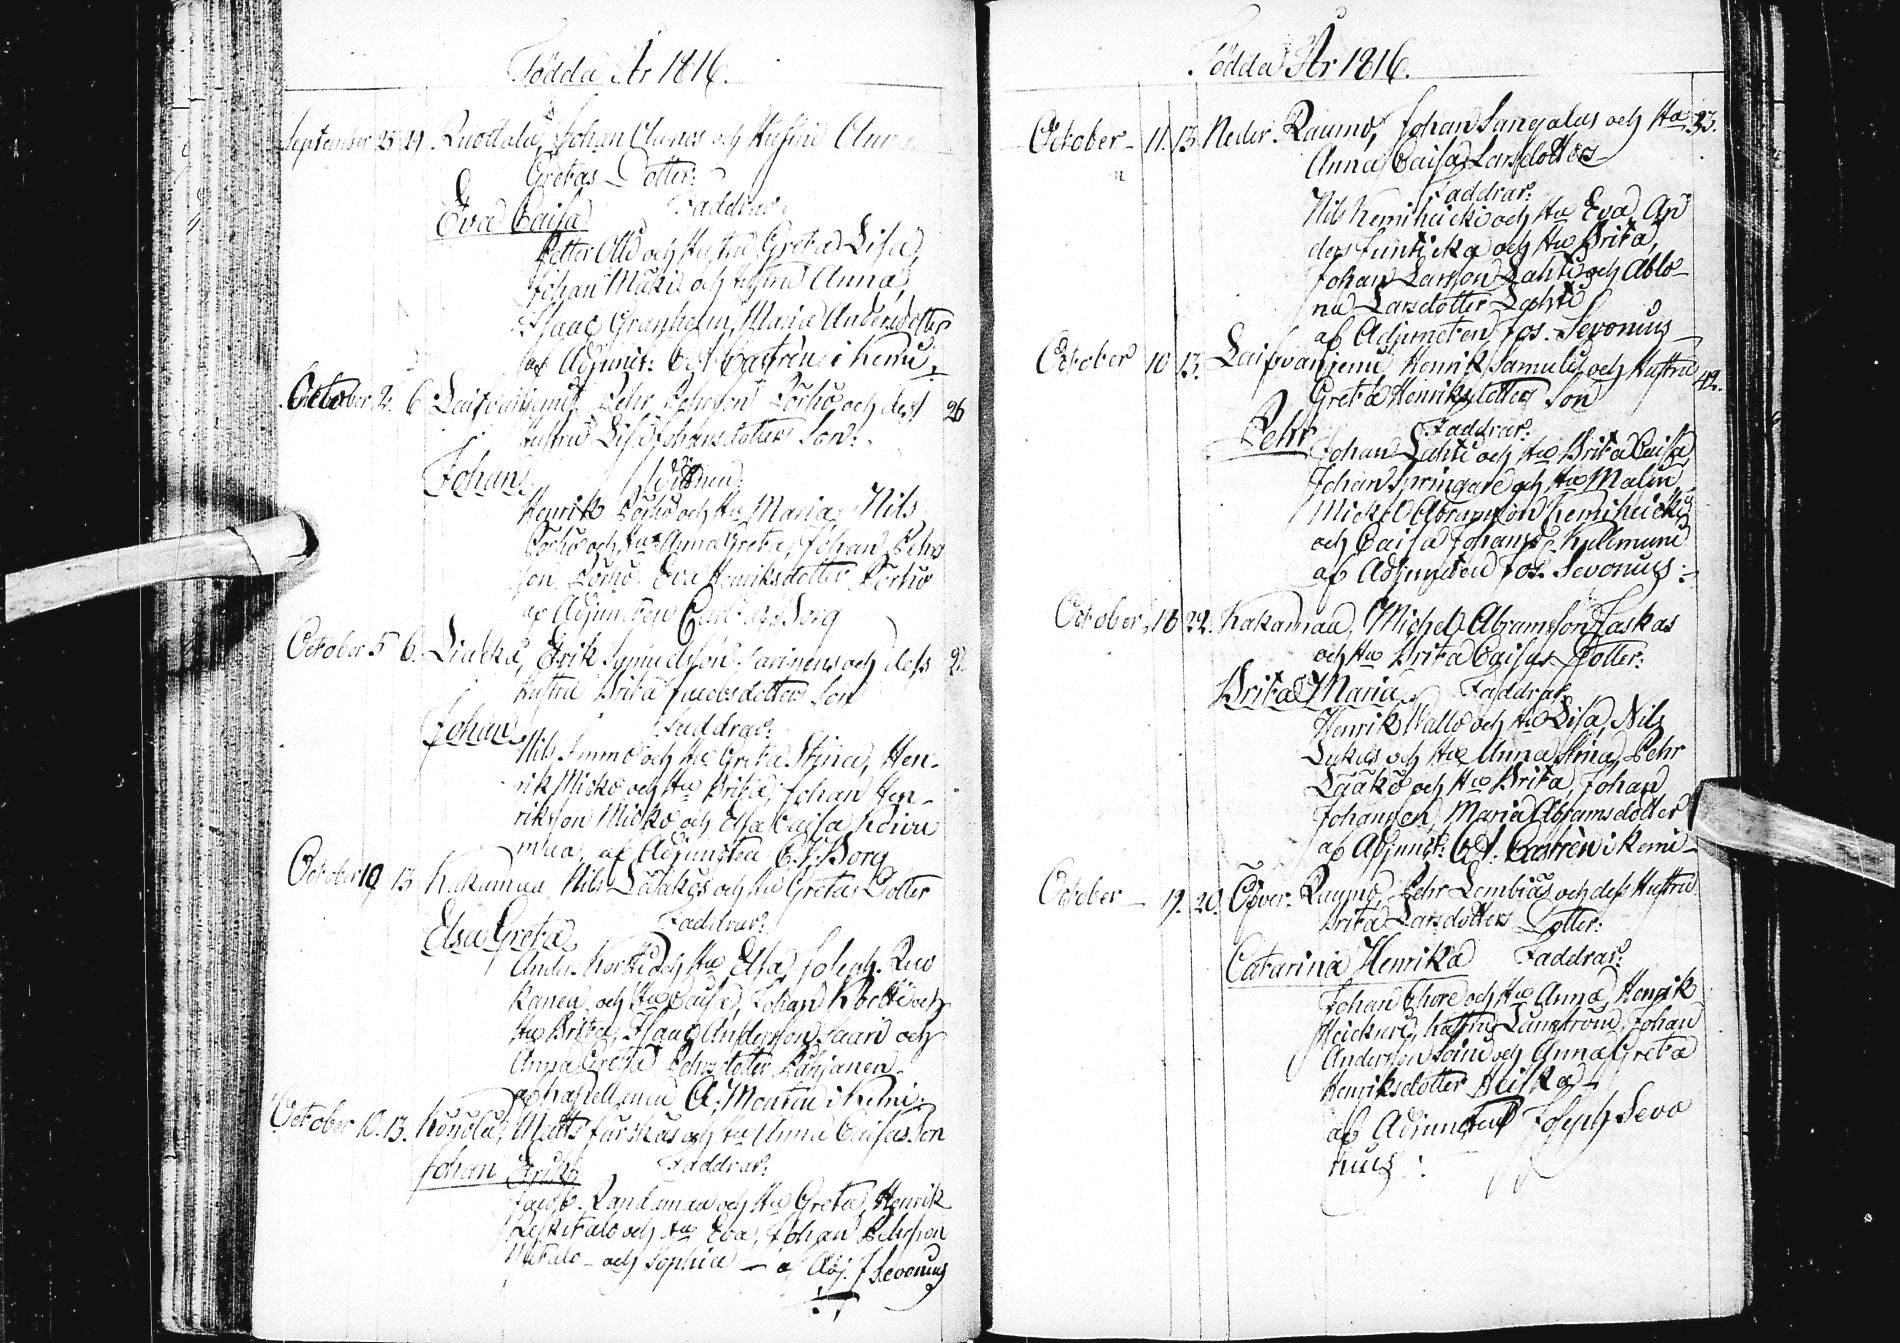 Födda År 1816.
September 23 29 Ruottala, Johan Clanos och Hustru Anna
Gretas Dotter:
Eva Caisa Faddrar:
Petter Ollo och Hustru Greta Lisa,
Johan Mäki och hustru Anna,
Isaac Granholm, Maria Andersdotter
af Adjunct: C. A. Castrén i Kemi.
October 2. 6 Laifvaniemi Pehr Pehrson Körkö och dess 26
Hustru Lisa Johansdotters Son:
Johan
Henrik Körkö och Hu Maria, Nils
Körkö och Hu Anna Greta, Johan Pehrs
son Körkö Eva Henriksdotter Körkö
af Adjuncten Carl Borg
October 5 6. Liakka, Erik Samuelsson och dess 2
Hustru Brita Jacobsdotters Son
Johan Faddrar:
Nils Immo och Hu Greta Stina, Hen-
rik Micko och Hu Brita, Johan Hen-
riksson Micko och Elsa Caisa Koivu
maa, af Adjuncten C. Borg
October 10 13 Kakamaa Nils Lääkkös och Hu Gretas Dotter
Elsa Greta Faddrar:
Anders Kortti och Hu Elsa, Joseph Ruo
kanen och Hu Caisa, Johan Kortti och
Hu Brita, Isaac Andersson Saari och
Anna Greta Pehrsdotter
af Kapellanen A. Montin i Kemi.
October 10. 13. Könölä, Matts och Hu Anna Caisas Son
Johan Erik Faddrar:
Jacob Kandamaa och Hu Greta, Henrik
och Hu Eva, Johan Pehrsson
och Sophia af Adj. J Sevonius
Födda År 1816.
October 11. 13. Neder. Raumo, Johan Sangalas och Hu 23.
Anna Caisa Larsdotters
Faddrar:
Nils Kemiheicki och Hu Eva, An
ders Junticka och Hu Brita,
Johan Larsson Lahti och Ablo-
na Larsdotter Lahti
af Adjuncten Jos. Sevonius
October 10 13. Laifvaniemi Henrik Samulis och Hustru 42.
Greta Henriksdotters Son
Pehr Faddrar:
Johan Lahti och Hu Brita Caisa
Johan Springare och Hu Malin,
Mickel Abramson Kemiheicki
och Caisa Johansd:
af Adjuncten Jos. Sevonius:
October 18 22. Kakamaa, Michel Abramsson Laskas
och Hu Brita Caisas Dotter:
Brita Maria Faddrar
Henrik Wallo och Hu Lisa, Nils
Lukas och Hu Anna Stina, Pehr
Lääkö och Hu Brita, Johan
Johansson, Maria Abramsdotter
af Adjunct: C. A. Castrén i Kemi
October 19. 20. Öfver. Raumo, Pehr Lembias och dess Hustru
Brita Larsdotters Dotter:
Catarina Henrika Faddrar:
Johan Thore och Hu Anna, Henrik
Heickuri, hustru Lundström, Johan
Andersson och Anna Greta
Henriksdotter Heiska
af Adjuncten Joseph Sevo
nius: